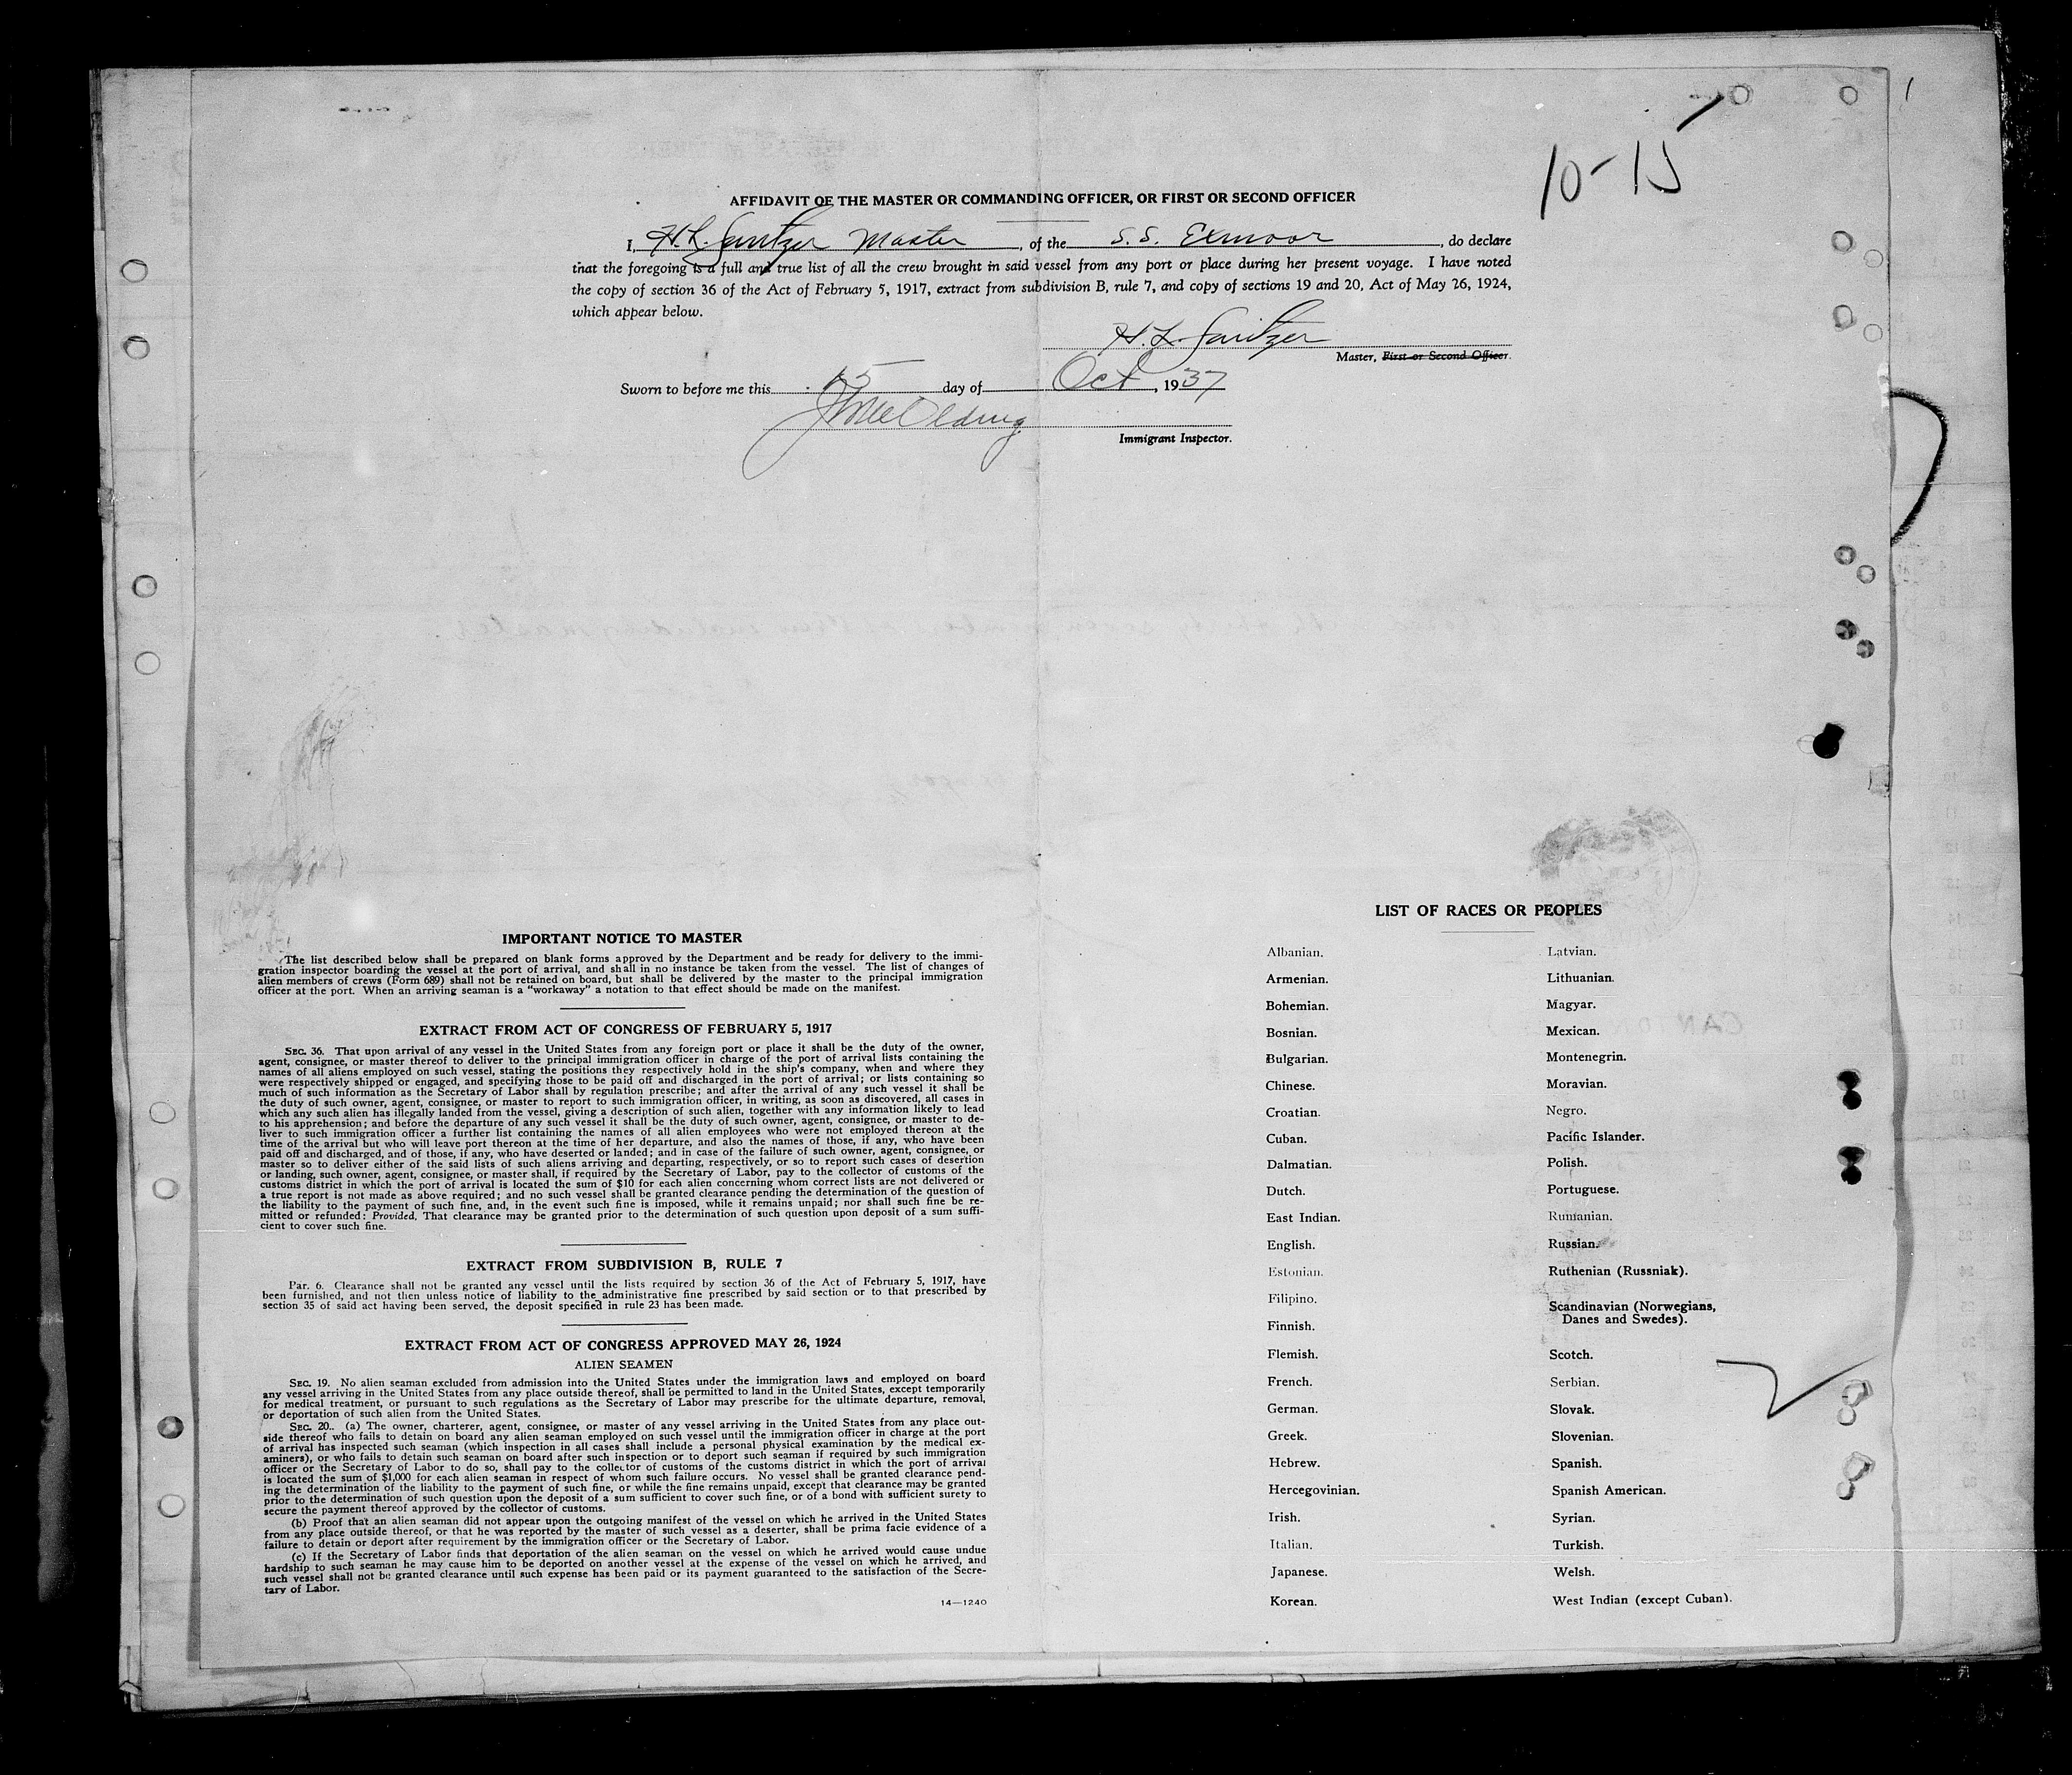 10-15
AFFIDAVIT OF THE MASTER OR COMMANDING OFFICER, OR FIRST OR SECOND OFFICER
I, H. L. Master, of the S.S. Exmoor, do declare
that the foregoing is a full and true list of all the crew brought in said vessel from any port or place during her present voyage. I have noted
the copy of section 36 of the Act of February 5, 1917, extract from subdivision B, rule 7, and copy of sections 19 and 20, Act of May 26, 1924,
which appear below.
H. L.
Master, First or Second Officer.
Sworn to before me this 15 day of Oct, 1937
Immigrant Inspector.
IMPORTANT NOTICE TO MASTER
The list described below shall be prepared on blank forms approved by the Department and be ready for delivery to the immi-
gration inspector boarding the vessel at the port of arrival, and shall in no instance be taken from the vessel. The list of changes of
alien members of crews (Form 689) shall not be retained on board, but shall be delivered by the master to the principal immigration
officer at the port. When an arriving seaman is a "workaway" a notation to that effect should be made on the manifest.
EXTRACT FROM ACT OF CONGRESS OF FEBRUARY 5, 1917
SEC. 36. That upon arrival of any vessel in the United States from any foreign port or place it shall be the duty of the owner,
agent, consignee, or master thereof to deliver to the principal immigration officer in charge of the port of arrival lists containing the
names of all aliens employed on such vessel, stating the positions they respectively hold in the ship's company, when and where they
were respectively shipped or engaged, and specifying those to be paid off and discharged in the port of arrival; or lists containing so
much of such information as the Secretary of Labor shall by regulation prescribe; and after the arrival of any such vessel it shall be
the duty of such owner, agent, consignee, or master to report to such immigration officer, in writing, as soon as discovered, all cases in
which any such alien has illegally landed from the vessel, giving a description of such alien, together with any information likely to lead
to his apprehension; and before the departure of any such vessel it shall be the duty of such owner, agent, consignee, or master to de-
liver to such immigration officer a further list containing the names of all alien employees who were not employed thereon at the
time of the arrival but who will leave port thereon at the time of her departure, and also the names of those, if any, who have been
paid off and discharged, and of those, if any, who have deserted or landed; and in case of the failure of such owner, agent, consignee, or
master so to deliver either of the said lists of such aliens arriving and departing, respectively, or so to report such cases of desertion
or landing, such owner, agent, consignee, or master shall, if required by the Secretary of Labor, pay to the collector of customs of the
customs district in which the port of arrival is located the sum of $10 for each alien concerning whom correct lists are not delivered or
a true report is not made as above required; and no such vessel shall be granted clearance pending the determination of the question of
the liability to the payment of such fine, and, in the event such fine is imposed, while it remains unpaid; nor shall such fine be re-
mitted or refunded: Provided, That clearance may be granted prior to the determination of such question upon deposit of a sum suffi-
cient to cover such fine.
EXTRACT FROM SUBDIVISION B, RULE 7
Par. 6. Clearance shall not be granted any vessel until the lists required by section 36 of the Act of February 5, 1917, have
been furnished, and not then unless notice of liability to the administrative fine prescribed by said section or to that prescribed by
section 35 of said act having been served, the deposit specified in rule 23 has been made.
EXTRACT FROM ACT OF CONGRESS APPROVED MAY 26, 1924
ALIEN SEAMEN
SEC. 19. No alien seaman excluded from admission into the United States under the immigration laws and employed on board
any vessel arriving in the United States from any place outside thereof, shall be permitted to land in the United States, except temporarily
for medical treatment, or pursuant to such regulations as the Secretary of Labor may prescribe for the ultimate departure, removal,
or deportation of such alien from the United States.
SEC. 20. (a) The owner, charterer, agent, consignee, or master of any vessel arriving in the United States from any place out-
side thereof who fails to detain on board any alien seaman employed on such vessel until the immigration officer in charge at the port
of arrival has inspected such seaman (which inspection in all cases shall include a personal physical examination by the medical ex-
aminers), or who fails to detain such seaman on board after such inspection or to deport such seaman if required by such immigration
officer or the Secretary of Labor to do so, shall pay to the collector of customs of the customs district in which the port of arrival
is located the sum of $1,000 for each alien seaman in respect of whom such failure occurs. No vessel shall be granted clearance pend-
ing the determination of the liability to the payment of such fine, or while the fine remains unpaid, except that clearance may be granted
prior to the determination of such question upon the deposit of a sum sufficient to cover such fine, or of a bond with sufficient surety to
secure the payment thereof approved by the collector of customs.
(b) Proof that an alien seaman did not appear upon the outgoing manifest of the vessel on which he arrived in the United States
from any place outside thereof, or that he was reported by the master of such vessel as a deserter, shall be prima facie evidence of a
failure to detain or deport after requirement by the immigration officer or the Secretary of Labor.
(c) If the Secretary of Labor finds that deportation of the alien seaman on the vessel on which he arrived would cause undue
hardship to such seaman he may cause him to be deported on another vessel at the expense of the vessel on which he arrived, and
such vessel shall not be granted clearance until such expense has been paid or its payment guaranteed to the satisfaction of the Secre-
tary of Labor.
14—1240
LIST OF RACES OR PEOPLES
Albanian.
Armenian.
Bohemian.
Bosnian.
Bulgarian.
Chinese.
Croatian.
Cuban.
Dalmatian.
Dutch.
East Indian.
English.
Estonian.
Filipino.
Finnish.
Flemish.
French.
German.
Greek.
Hebrew.
Hercegovinian.
Irish.
Italian.
Japanese.
Korean.
Latvian.
Lithuanian.
Magyar.
Mexican.
Montenegrin.
Moravian.
Negro.
Pacific Islander.
Polish.
Portuguese.
Rumanian.
Russian.
Ruthenian (Russniak).
Scandinavian (Norwegians,
Danes and Swedes).
Scotch.
Serbian.
Slovak.
Slovenian.
Spanish.
Spanish American.
Syrian.
Turkish.
Welsh.
West Indian (except Cuban).